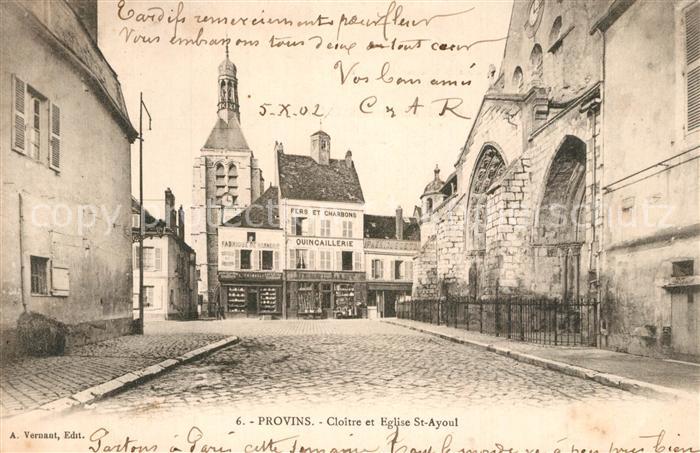 Tardifs remerciements pour fleur
Vous embrassons tous deux de tout cœur
Vos bons amis
5-X.02 C & A R
FERS ET CHARBONS
QUINCAILLERIE
FABRIQUE DE
6. - PROVINS. - Cloître et Eglise St-Ayoul
A. Vernant, Edit.
Partons à Paris cette semaine Tout le monde va à peu près bien